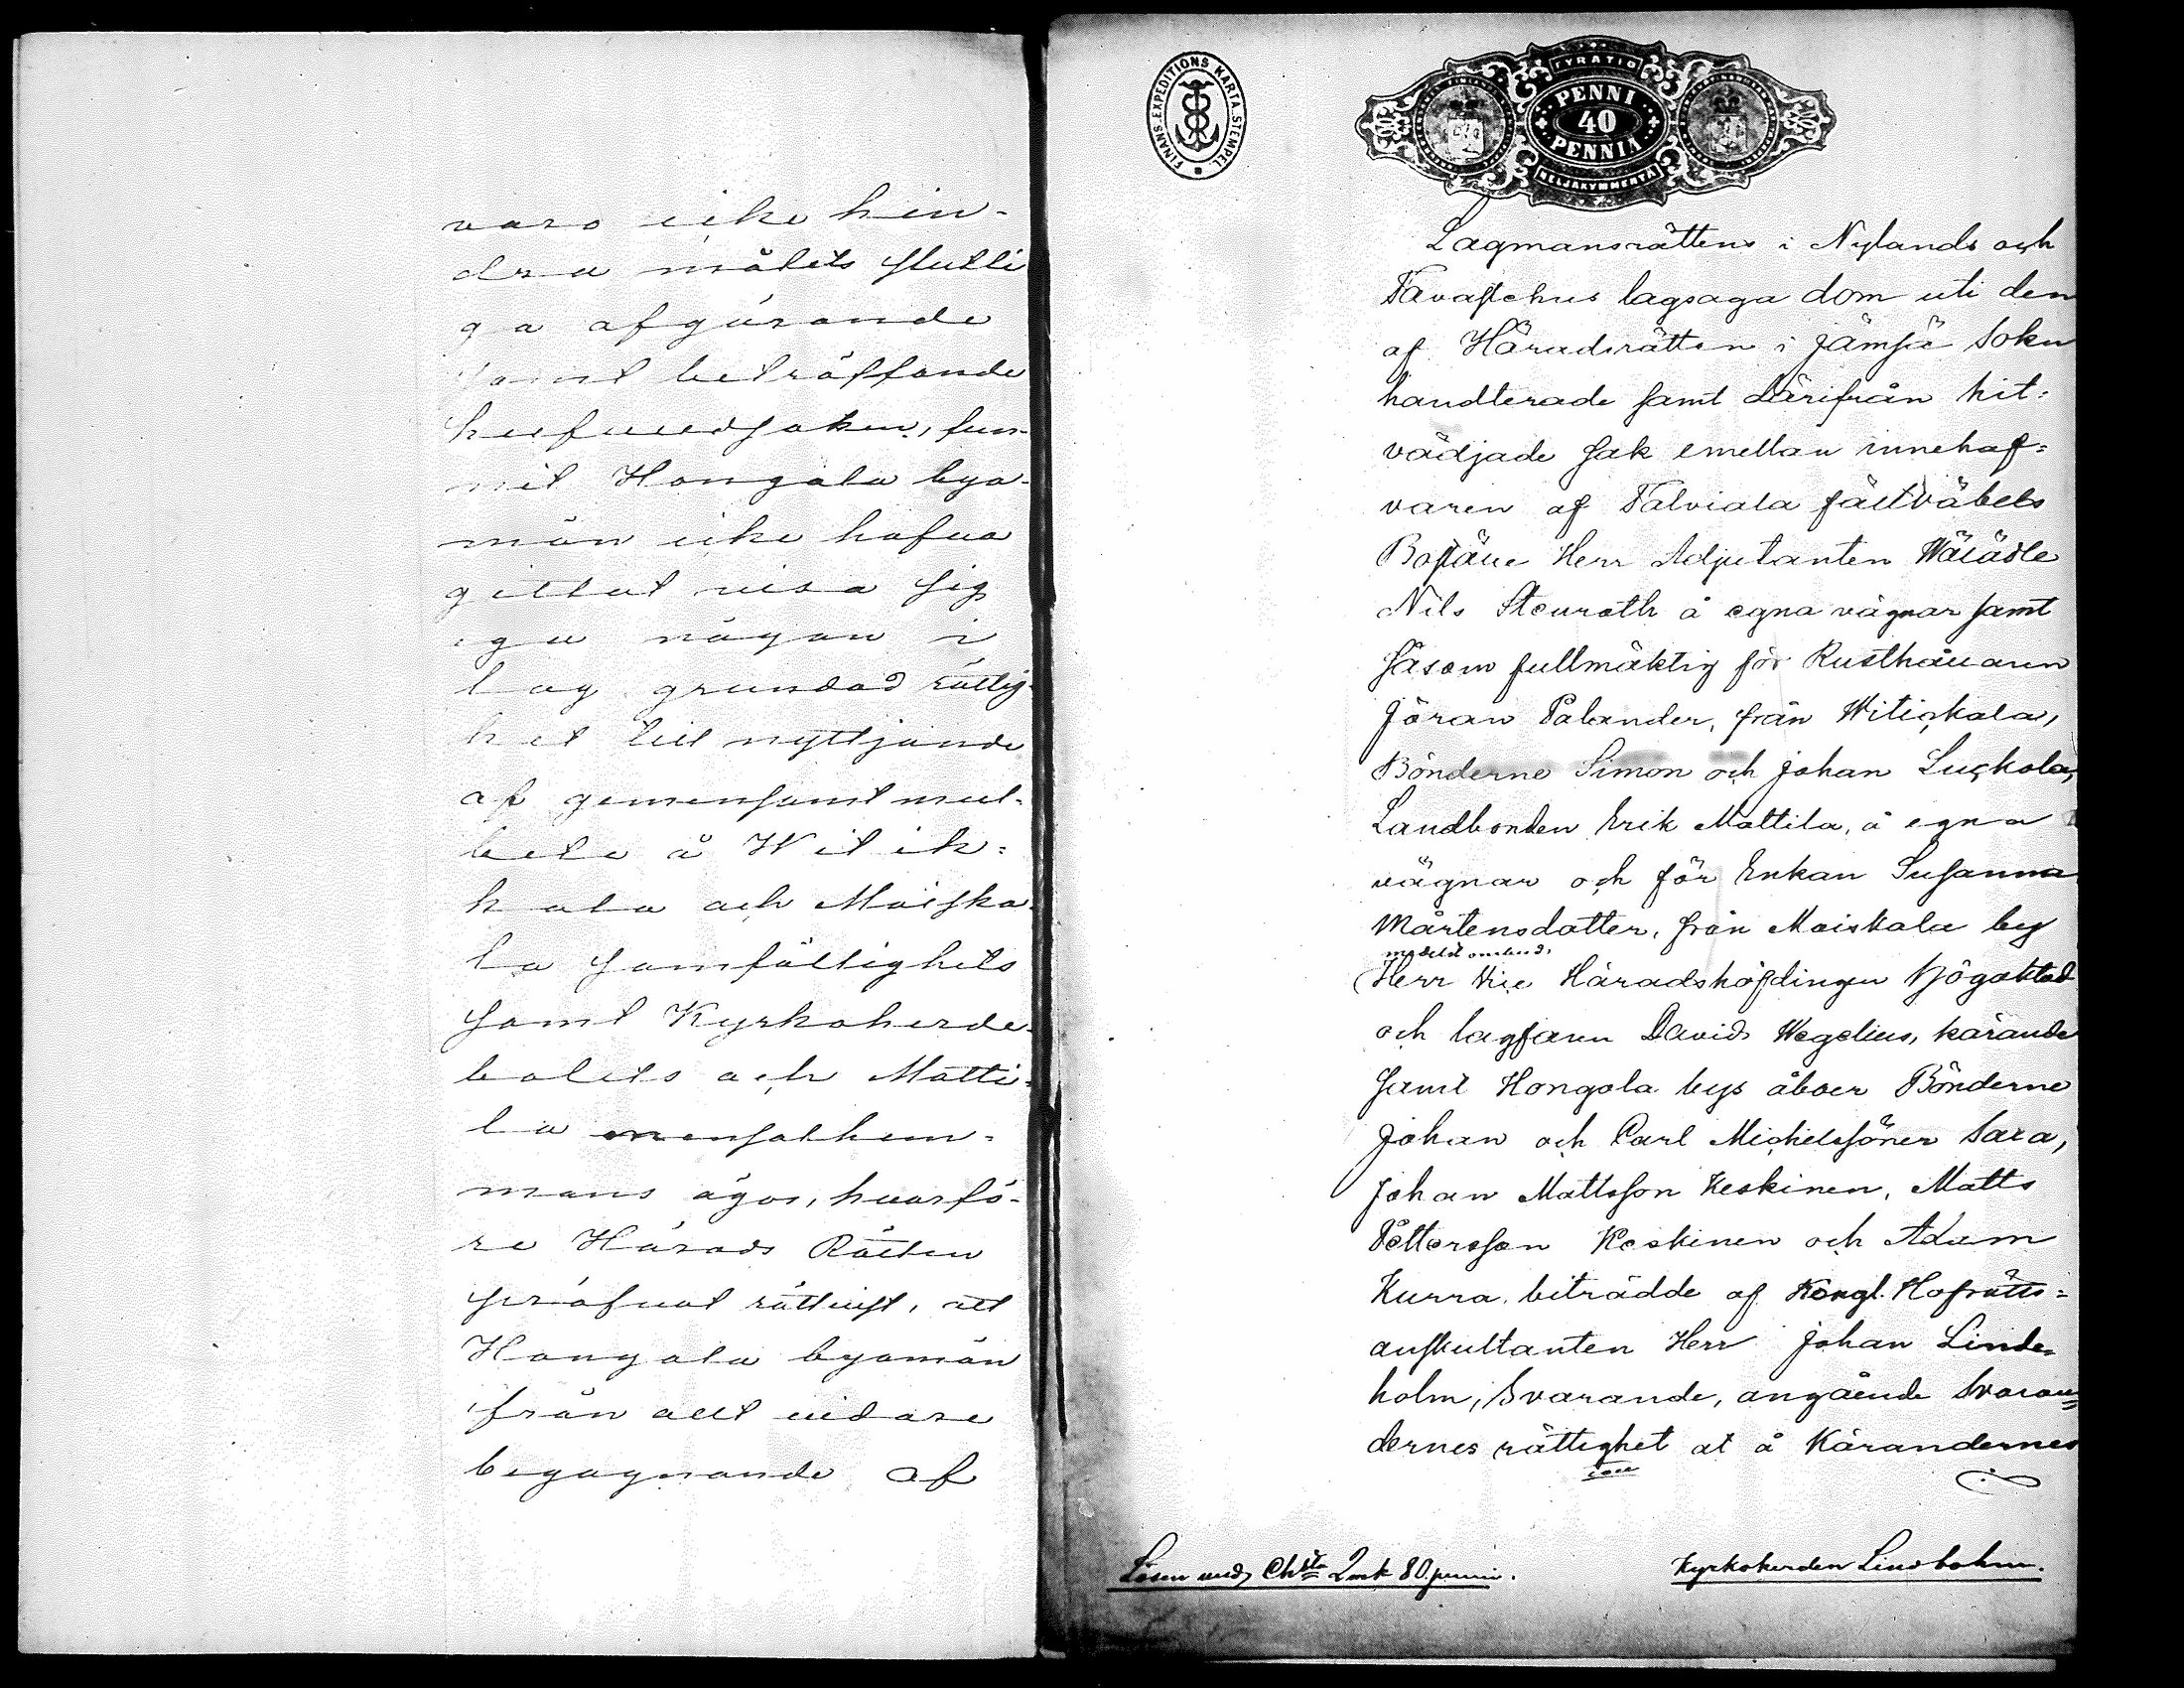 varo icke hin-
dra målets slutli
ga afgörande
samt beträffande
hufvudsaken, fun-
nit Hongola bya-
män icke hafva
gittat visa sig
ega någon i
lag grundad rättig-
het till nyttjande
af gemensamt mul-
bete å Witik-
kala och Maiska-
la samfällighets
samt Kyrkoherde-
bolets och Matti-
la mensalhem-
mans ägor, hvarfö-
re Härads Rätten
pröfvat rättvist, att
Hongola byamän
från allt vidare
begagnande af
FINANS.EXPEDITIONS KARTA.STEMPEL
FYRATIO
PENNI
40
PENNIÄ
NELJÄKYMMENTÄ
Lagmansrättens i Nylands och
Tavastehus lagsaga dom uti den
af Häradsrätten i Jämsä Sokn
handlerade samt därifrån hit-
vädjade sak emellan innehaf-
varen af Talviala fältväbels
Boställe Herr Adjutanten Wälädle
Nils Stourath å egna vägnar samt
såsom fullmäktig för Rusthållaren
Jöran Palander, från Witickala,
Bönderne Simon och Johan Luckola,
Landbonden Erik Mattila, å egna
vägnar och för Enkan Susanna
Mårtensdotter, från Maiskala by
medelst ombud,
(Herr Vice Häradshöfdingen Högaktad
och lagfaren David Wegelius, kärande
samt Hongola bys åboer Bönderne
Johan och Carl Michelssöner Sara,
Johan Mattsson Keskinen, Matts
Pettersson Keskinen och Adam
Kurra, biträdde af Kongl. Hofrätts-
auskultanten Herr Johan Linde-
holm, Svarande, angående Svaran-
dernes rättighet at å Kärandernes
Lösen med Ch:ta 2mk 80 penni.
Kyrkoherden Lindbohm.